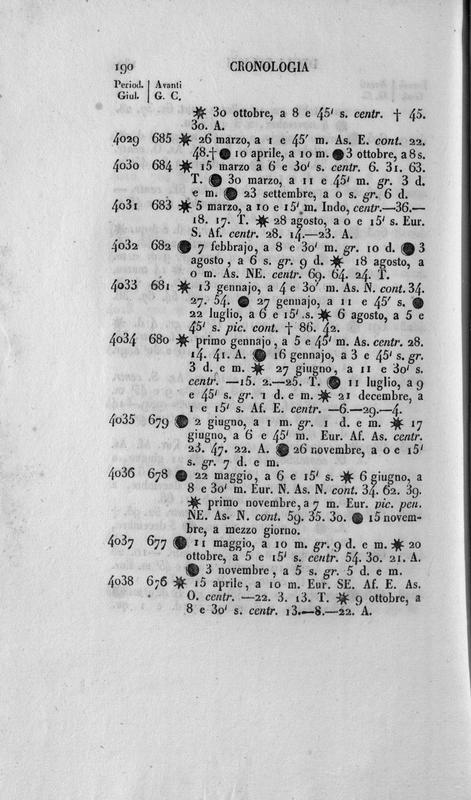 190 CRONOLOGIA
Period. | Avanti
Giul. | G. C.
✷ 30 ottobre, a 8 e 45' s. centr. † 45.
30. A.
4029 685 ✷ 26 marzo, a 1 e 45' m. As. E. cont. 22.
48.† ● 10 aprile, a 10 m. ● 3 ottobre, a 8 s.
4030 684 ✷ 15 marzo a 6 e 30' s. centr. 6. 31. 63.
T. ● 30 marzo, a 11 e 45' m. gr. 3 d.
e m. ● 23 settembre, a 0 s. gr. 6 d.
4031 683 ✷ 5 marzo, a 10 e 15' m. Indo, centr.—36.—
18. 17. T. ✷ 28 agosto, a 0 e 15' s. Eur.
S. Af. centr. 28. 14.—23. A.
4032 682 ● 7 febbrajo, a 8 e 30' m. gr. 10 d. ● 3
agosto, a 6 s. gr. 9 d. ✷ 18 agosto, a
0 m. As. NE. centr. 69. 64. 24. T.
4033 681 ✷ 13 gennajo, a 4 e 30' m. As. N. cont. 34.
27. 54. ● 27 gennajo, a 11 e 45' s. ●
22 luglio, a 6 e 15' s. ✷ 6 agosto, a 5 e
45' s. pic. cont. † 86. 42.
4034 680 ✷ primo gennajo, a 5 e 45' m. As. centr. 28.
14. 41. A. ● 16 gennajo, a 3 e 45' s. gr.
3 d. e m. ✷ 27 giugno, a 11 e 30' s.
centr. —15. 2.—25. T. ● 11 luglio, a 9
e 45' s. gr. 1 d. e m. ✷ 21 decembre, a
1 e 15' s. Af. E. centr. —6.—29.—4.
4035 679 ● 2 giugno, a 1 m. gr. 1 d. e m. ✷ 17
giugno, a 6 e 45' m. Eur. Af. As. centr.
23. 47. 22. A. ● 26 novembre, a 0 e 15'
s. gr. 7 d. e m.
4036 678 ● 22 maggio, a 6 e 15' s. ✷ 6 giugno, a
8 e 30' m. Eur. N. As. N. cont. 34. 62. 39.
✷ primo novembre, a 7 m. Eur. pic. pen.
NE. As. N. cont. 59. 35. 30. ● 15 novem-
bre, a mezzo giorno.
4037 677 ● 11 maggio, a 10 m. gr. 9 d. e m. ✷ 20
ottobre, a 5 e 15' s. centr. 54. 30. 21. A.
● 3 novembre, a 5 s. gr. 5 d. e m.
4038 676 ✷ 15 aprile, a 10 m. Eur. SE. Af. E. As.
O. centr. —22. 3. 13. T. ✷ 9 ottobre, a
8 e 30' s. centr. 13.—8.—22. A.